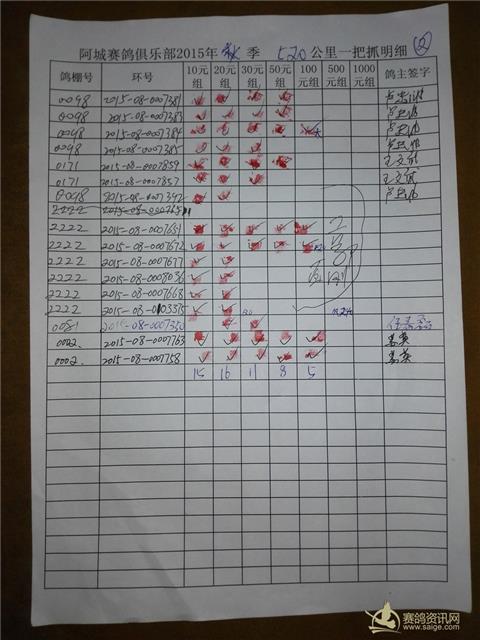 阿城赛鸽俱乐部2015年 秋 季 520 公里一把抓明细 ②
鸽棚号 环号 10元组 20元组 30元组 50元组 100元组 500元组 1000元组 鸽主签字
0098 2015-08-0007381
0098 2015-08-0007383
0098 2015-08-0007384
0098 2015-08-0007385
0171 2015-08-0007859
0171 2015-08-0007857
0098 2015-08-0007392
2222
2222 2015-08-0007651
2222 2015-08-0007672
2222 2015-08-0007677
2222 2015-08-0008036
2222 2015-08-0007668
2222 2015-08-0103375
0081 2015-08-0007350
0002 2015-08-0007763
0002 2015-08-0007758
15 16 11 8 5
赛鸽资讯网
www.saige.com